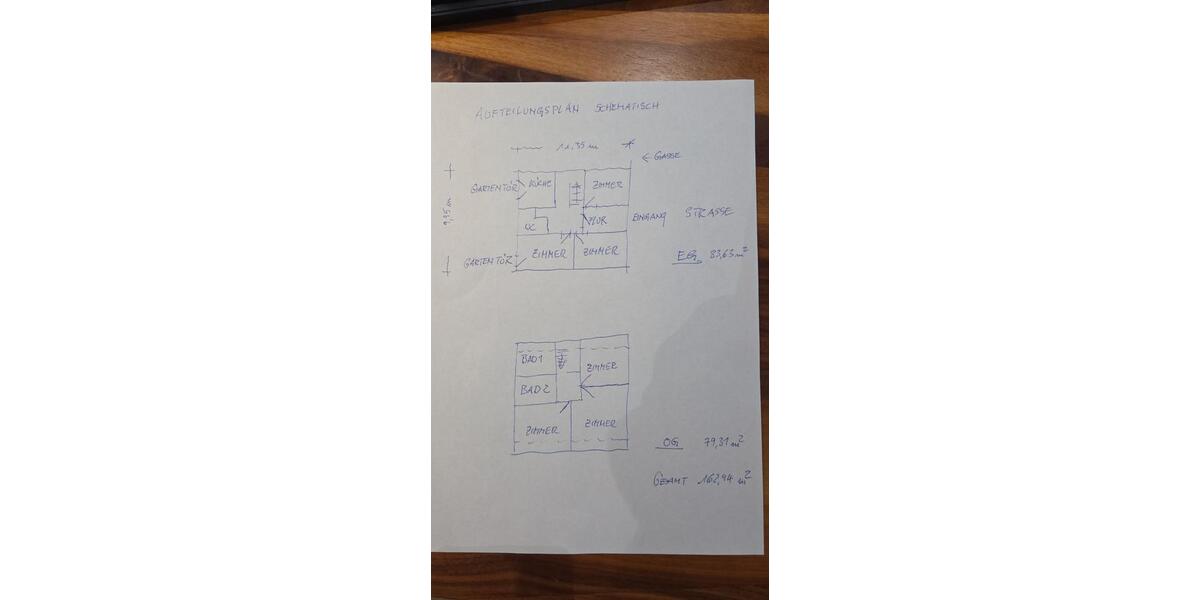 AUFTEILUNGSPLAN SCHEMATISCH
11,35 m
← GASSE
GARTENTÜR KÜCHE ZIMMER
9,35 m
WC FLUR EINGANG STRASSE
GARTENTÜR ZIMMER ZIMMER
EG 83,63 m²
BAD 1
ZIMMER
BAD 2
ZIMMER ZIMMER
OG 79,31 m²
GESAMT 162,94 m²